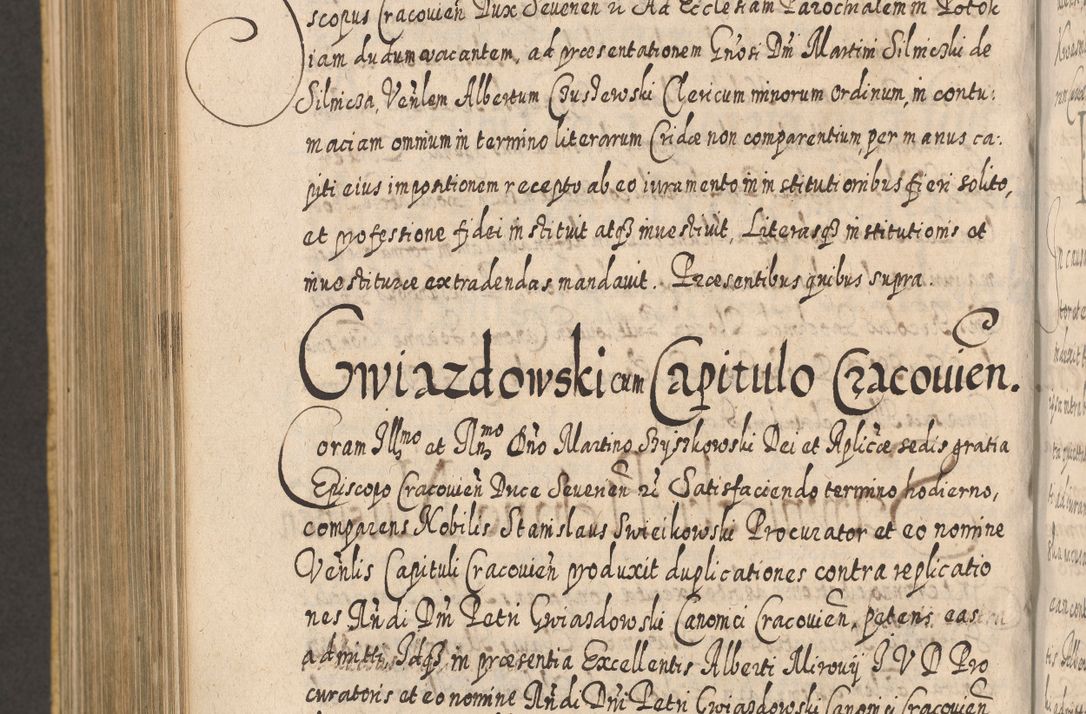 scopus Cracovien̄ Dux Severien̄ ꝛc Ad Ecclesiam Parochialem in Potok
iam dudum vacantem, ad præsentationem Gn̄osi Dn̄i Martini Silniczki de
Silnicza, Ven̄lem Albertum Czuszewski Clericum minorum Ordinum, in contu:
maciam omnium in termino literarum Cridæ non comparentium, per manus ca:
piti eius impositionem recepto ab eo iuramento in institutionibus fieri solito,
et professione fidei instituit atqȝ investivit, Literasqȝ institutionis et
investituræ extradendas mandavit. Præsentibus quibus supra.
Gwiazdowski cum Capitulo Cracovien.
Coram Illmo et Rn̄mo Dn̄o Martino Szyszkowski Dei et Aplicæ sedis gratia
Episcopo Cracovien̄ Duce Severien̄ ꝛc Satisfaciendo termino hodierno,
comparens Nobilis Stanislaus Swieikowski Procurator et eo nomine
Ven̄lis Capituli Cracovien̄ produxit duplicationes contra replicatio
nes Rn̄di Dn̄i Petri Gwiazdowski Canonici Cracovien̄, petens eas
admitti, Idqȝ in præsentia Excellentis Alberti Mirovij I V D Pro
curatoris et eo nomine Rn̄di Dn̄i Petri Gwiazdowski Canonici Cracovien̄